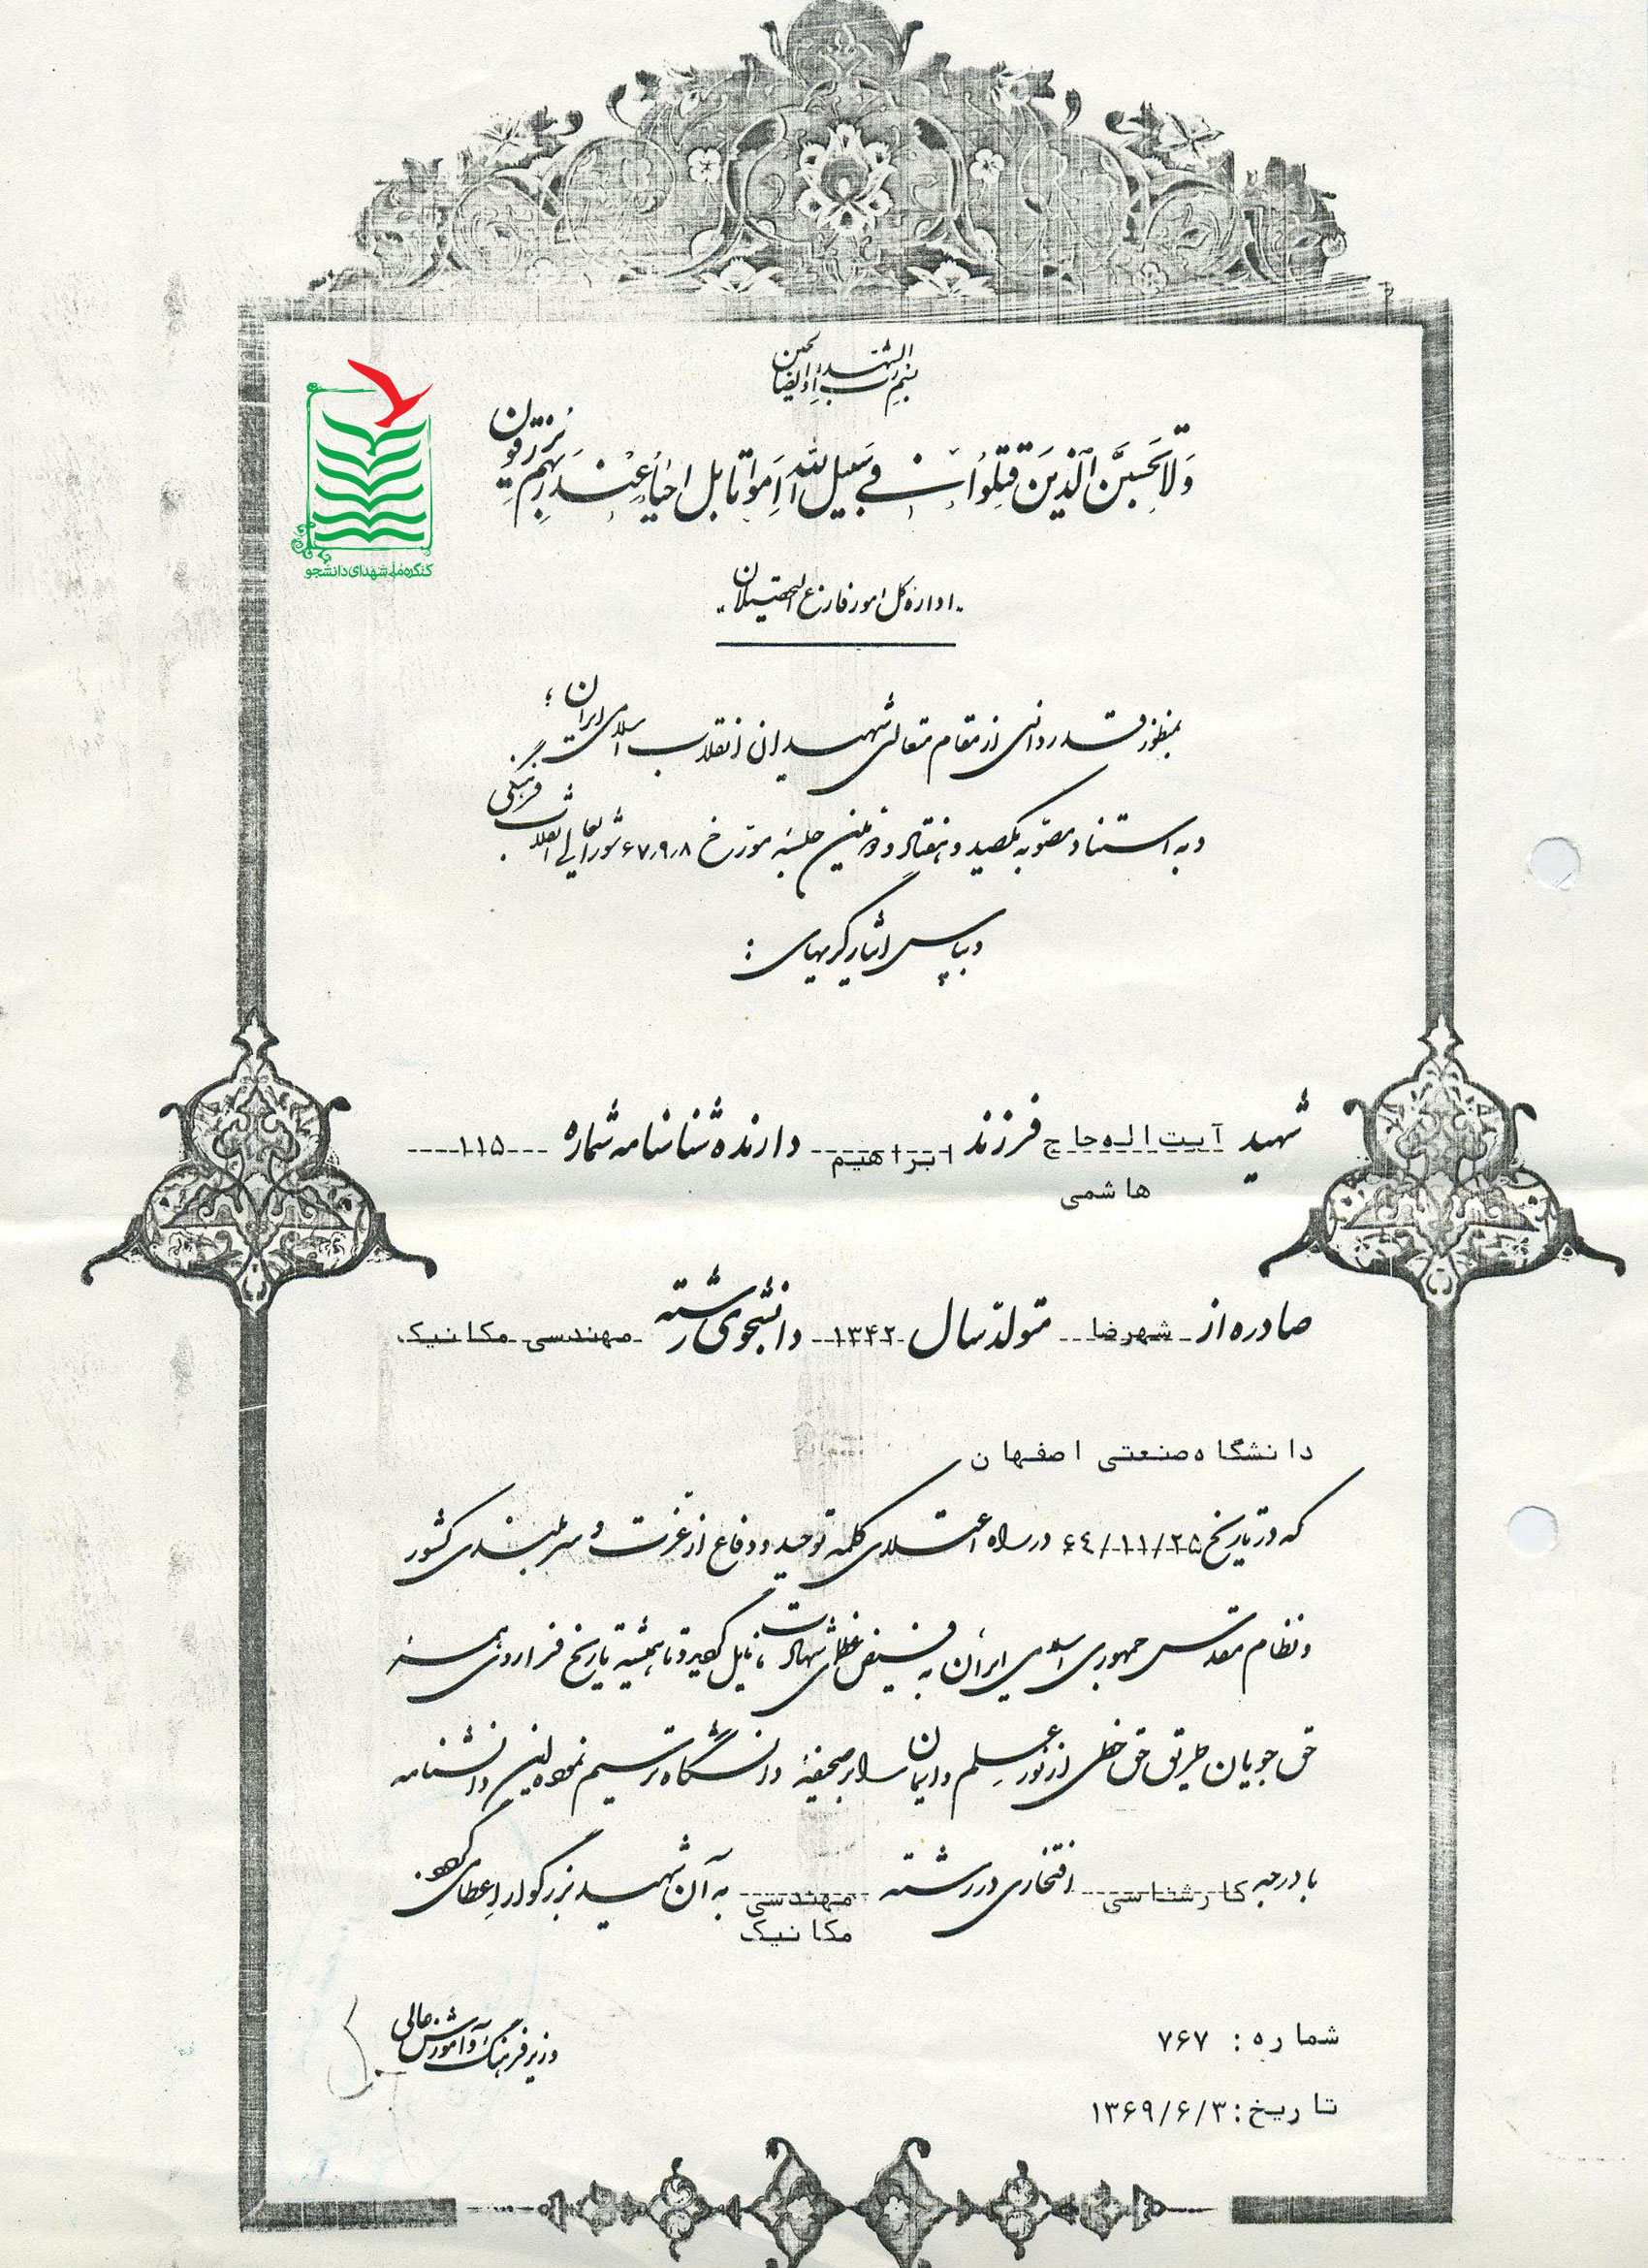 بسم رب الشهداء و الصالحین
وَلا تَحسَبَنَّ الَّذینَ قُتِلوُا فی سَبیلِ اللهِ اَمواتا بَل اَحیاءٌ عِندَ رَبِّهِم یُرزَقون
کنگره ملی شهدای دانشجو
اداره کل امور فارغ التحصیلان
بمنظور قدردانی از مقام متعالی شهیدان انقلاب اسلامی ایران؛
و به استناد مصوبه یکصد و هفتاد و دومین جلسه مورخ ۶۷٫۹٫۸ شورایعالی انقلاب فرهنگی
و بپاس ایثارگریهای :
شهید آیت اله حاج فرزند ابراهیم دارنده شناسنامه شماره ۱۱۵
هاشمی
صادره از شهرضا متولد سال ۱۳۴۲ دانشجوی رشته مهندسی مکانیک
دانشگاه صنعتی اصفهان
که در تاریخ ۶۴/۱۱/۲۵ در راه اعتلای کلمه توحید و دفاع از عزت و سربلندی کشور
و نظام مقدس جمهوری اسلامی ایران به فیض عظمای شهادت نایل گردید و تا همیشه تاریخ فرا روی همه
حق جویان طریق حق خطی از نور علم و ایمان را بر صحیفه دانشگاه ترسیم نموده این دانشنامه
با درجه کارشناسی افتخاری در رشته مهندسی به آن شهید بزرگوار اعطا می گردد.
مکانیک
وزیر فرهنگ و آموزش عالی
شماره: ۷۶۷
تاریخ: ۱۳۶۹/۶/۳